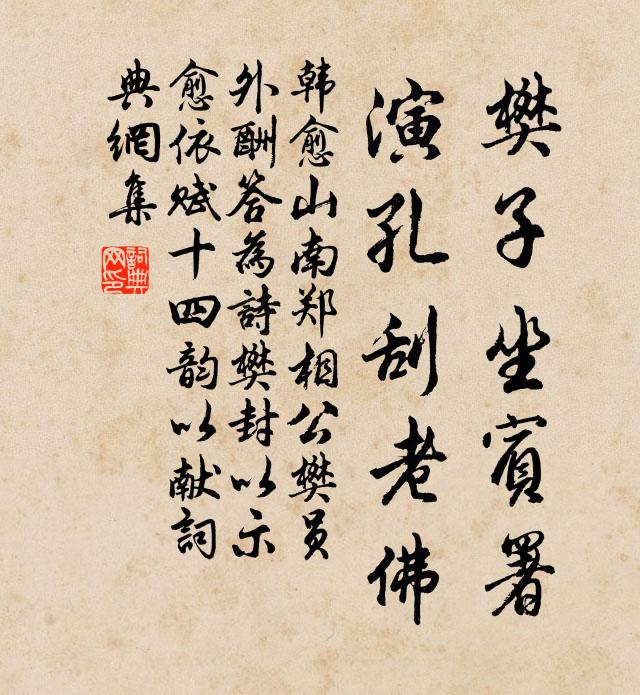 樊子坐賓署
演孔刮老佛
韩愈山南郑相公樊员
外酬答為詩樊封以示
愈依赋十四韵以献詞
典網集
詞典网印